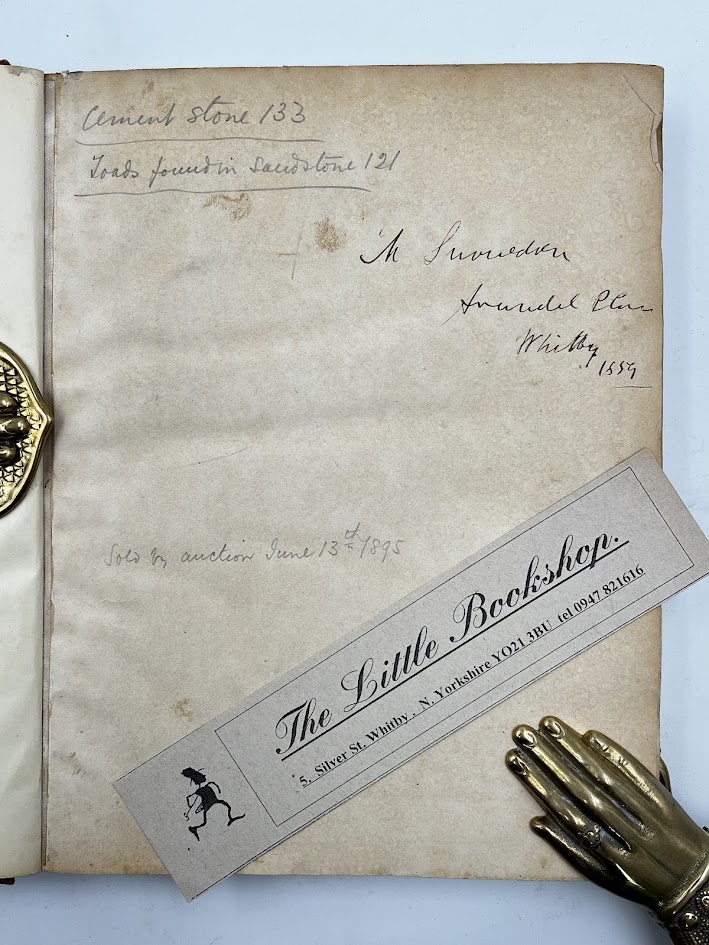 Cement Stone 133
Toads found in Sandstone 121
M Snowdon
Arundel Place
Whitby
1859
Sold by auction June 13th 1895
The Little Bookshop.
5, Silver St. Whitby, N. Yorkshire YO21 3BU tel 0947 821616